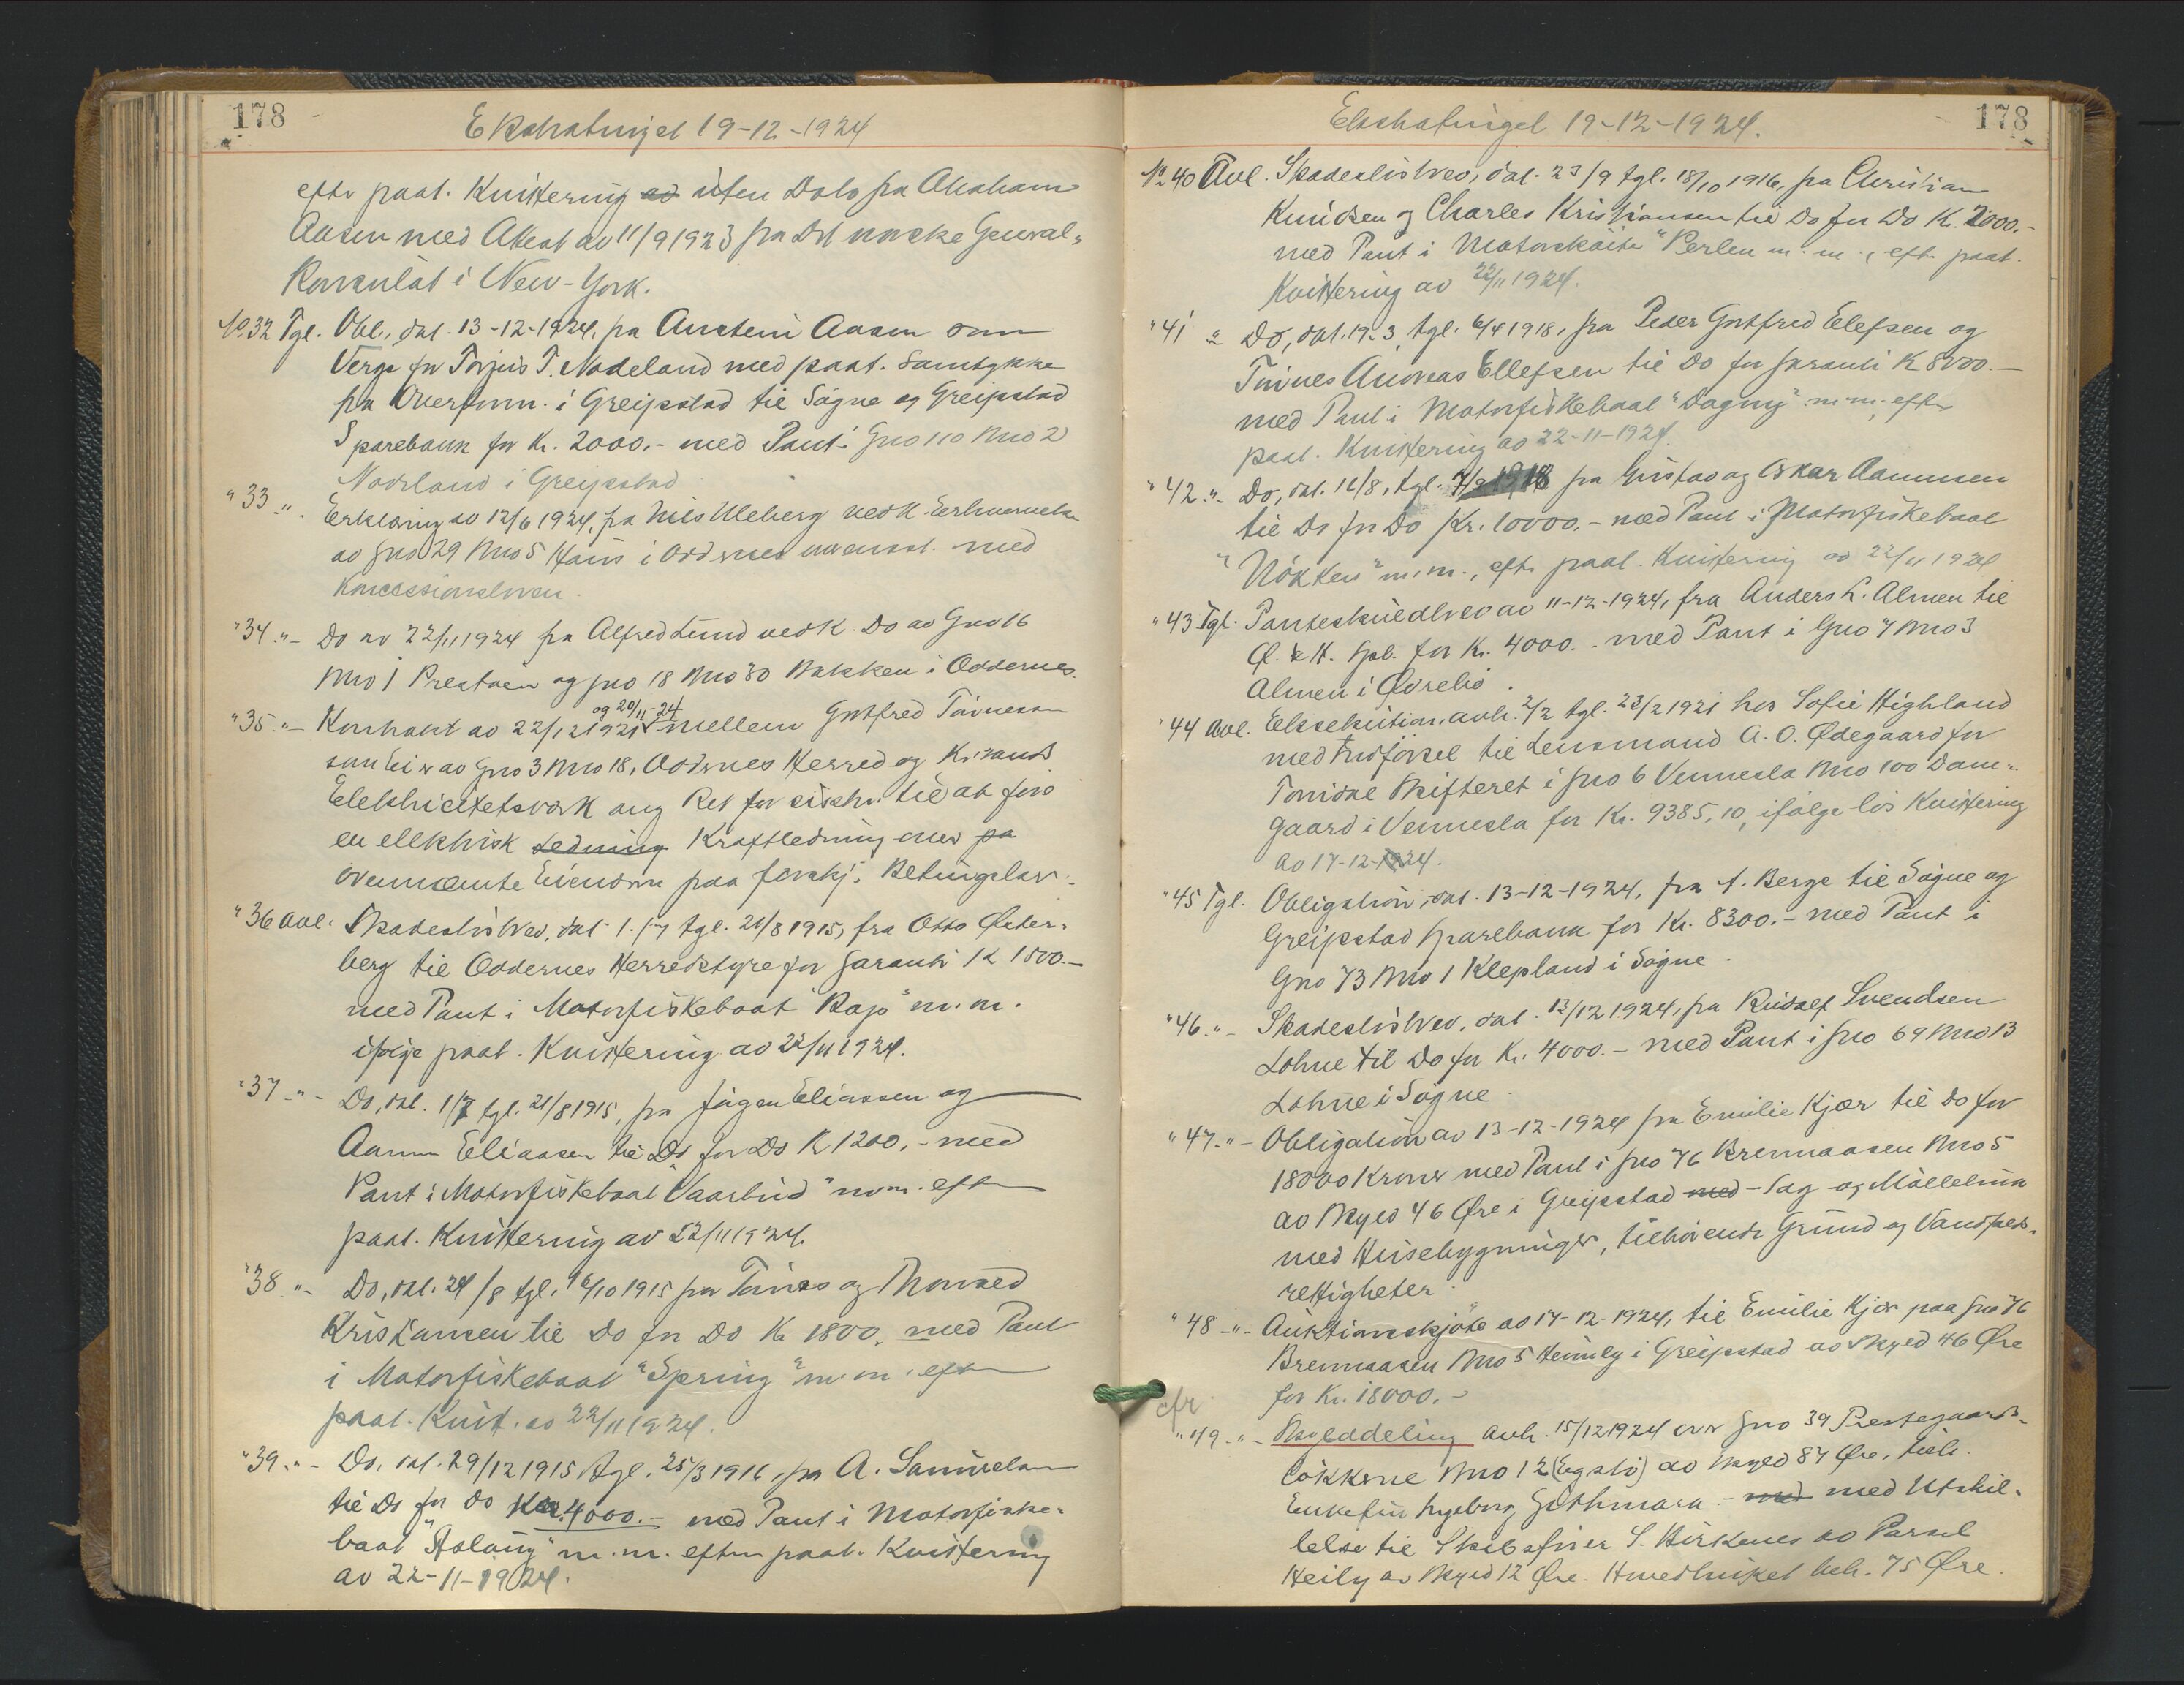 178
Ekstratinget 19-12-1924
efter paat. Kvittering av uten Dato fra Abraham
Aasen med Attest av 11/9 1923 fra Det norske General-
Konsulat i New-York.
No 32 Tgl. Obl., dat. 13-12-1924, fra Anstein Aasen som
Verge for Torjus T. Nodeland med paat. Samtykke
fra Overform. i Greipstad til Søgne og Greipstad
Sparebank for Kr. 2000.- med Pant i Gno 110 Bno 2
Nodeland i Greipstad
" 33 -"- Erklæring av 12/6 1924, fra Nils Uleberg vedk. Erhvervelse
av Gno 29 Bno 5 i Oddernes uvensst. med
Koncessionsloven.
" 34 -"- Do av 22/11 1924 fra Alfred Lund vedk. Do av Gno 16
Bno 1 Prestøen og gno 18 Bno 30 Bakken i Oddernes.
og 20/11-24
" 35 -"- Kontrakt av 22/12 1921 mellem Gotfred Tønnessen
som Eier av Gno 3 Bno 18, Oddernes Herred og Kr.sands
Elektricitetsverk ang Ret for sidstn. til at føre
en elektrisk Ledning Kraftledning over pa
ovennævnte Eiendom paa forskj. Betingelser.
" 36 Avl. Skadesløsbrev, dat. 1/7 tgl. 21/8 1915, fra Otto Øster-
berg til Oddernes Herredstyre for Garanti K 1500.-
med Pant i Motorfiskebaat "Rap" m. m.
ifølge paat. Kvittering av 22/11 1924.
" 37 -"- Do, dat. 1/7 tgl. 21/8 1915, fra Jørgen Eliassen og
Aanen Eliassen til Do for Do K 1200.- med
Pant i Motorfiskebaat "Vaarbud" m.m. efter
paat. Kvittering av 22/11 1924.
" 38 -"- Do, dat. 24/8 tgl. 16/10 1915 fra Tønnes og Thorvald
Kristiansen til Do for Do Kr 1800. med Pant
i Motorfiskebaat "Spring" m. m. efter
paat. Kvitt. av 22/11 1924.
" 39 -"- Do, dat. 29/12 1915 tgl. 25/3 1916, fra A. Samuelsen
til Do for Do Kr. 4000.- med Pant i Motorfiske-
baat "Aslaug" m. m. efter paat. Kvittering
av 22-11-1924.
178
Ekstratinget 19-12-1924.
No 40 Avl. Skadesløsbrev, dat. 23/9 tgl. 18/10 1916, fra Christian
Knudsen og Charles Kristiansen til Do for Do Kr. 2000.-
med Pant i Motorskøite "Perlen m. m., efter paat.
Kvittering av 22/11 1924.
" 41 -"- Do, dat. 19-3, tgl. 6/4 1918, fra Peder Gotfred Elefsen og
Tønnes Andreas Ellefsen til Do for Garanti K 8000.-
med Pant i Motorfiskebaat "Dagny" m.m. efter
paat. Kvittering av 22-11-1924.
" 42 -"- Do, dat. 16/8, tgl. 7/9 1918 fra Gustav og Oskar Aanensen
til Do for Do Kr. 10000.- med Pant i Motorfiskebaat
"Nøkken" m. m., efter paat. Kvittering av 22/11 1924
" 43 Tgl. Panteskuldbrev av 11-12-1924, fra Anders L. Almen til
Ø. & H. Spb. for Kr. 4000.- med Pant i Gno 7 Bno 3
Almen i Øvrebø.
" 44 Avl. Eksekution, avh. 2/2 tgl. 23/2 1921 hos Sofie Highland
med Indførsel til Lensmand A. O. Ødegaard for
Torridal Skifteret i gno 6 Vennesla Bno 100 Dam-
gaard i Vennesla for Kr. 9385,10, ifølge løs Kvittering
av 17-12-1924.
" 45 Tgl. Obligation, dat. 13-12-1924, fra A. Berge til Søgne og
Greipstad Sparebank for Kr. 8300.- med Pant i
Gno 73 Bno 1 Klepland i Søgne.
" 46 -"- Skadesløsbrev, dat. 13/12 1924, fra Rudolf Svendsen
Lohne til Do for Kr. 4000.- med Pant i gno 69 Bno 13
Lohne i Søgne
" 47 -"- Obligation av 13-12-1924 fra Emilie Kjær til do for
18000 Kroner med Pant i gno 76 Brennaasen Bno 5
av Skyld 46 Øre i Greipstad med - Sag og Møllebruk
med Husebygninger, tilhørende Grund og Vandfalds-
rettigheter.
" 48 -"- Auktionsskjøte av 17-12-1924, til Emilie Kjær paa gno 76
Brennaasen Bno 5 i Greipstad av Skyld 46 Øre
for Kr. 18000.-
cfr
" 49 -"- Skylddeling avh. 15/12 1924 over gno 39 Prestegaards-
løkkene Bno 12 (Engslo) av Skyld 87 Øre, tilh.
Enkefru Ingeborg - med med Utskil-
lelse til Skibsfører S. Birkenes av Parsel
Heily av Skyld 12 Øre. Hovedbruket beh. 75 Øre.